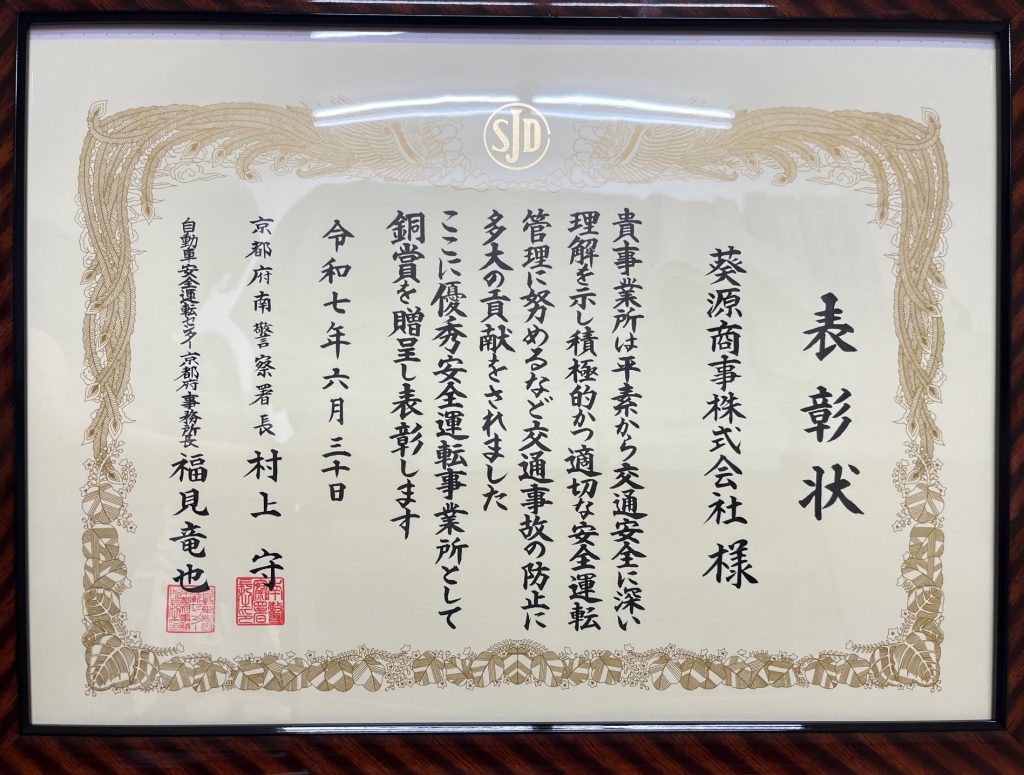 SJD
表彰状
葵源商事株式会社 様
貴事業所は平素から交通安全に深い
理解を示し積極的かつ適切な安全運転
管理に努めるなど交通事故の防止に
多大の貢献をされました
ここに優秀安全運転事業所として
銅賞を贈呈し表彰します
令和七年六月三十日
京都府南警察署長 村上 守
自動車安全運転センター京都府事務所長 福見竜也